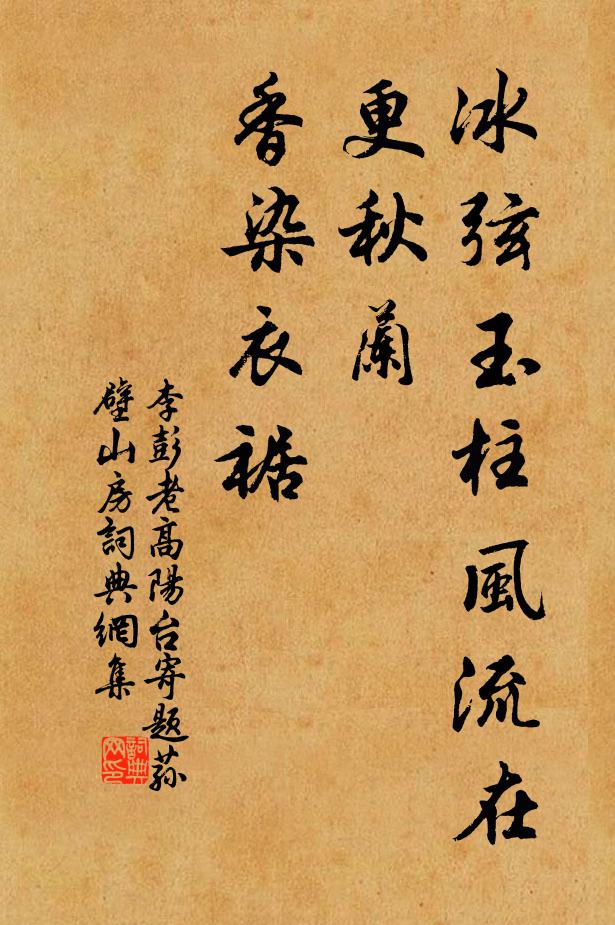 冰弦玉柱風流在
更秋蘭
香染衣裾
李彭老高陽台寄题荪
壁山房詞典網集
詞典网印